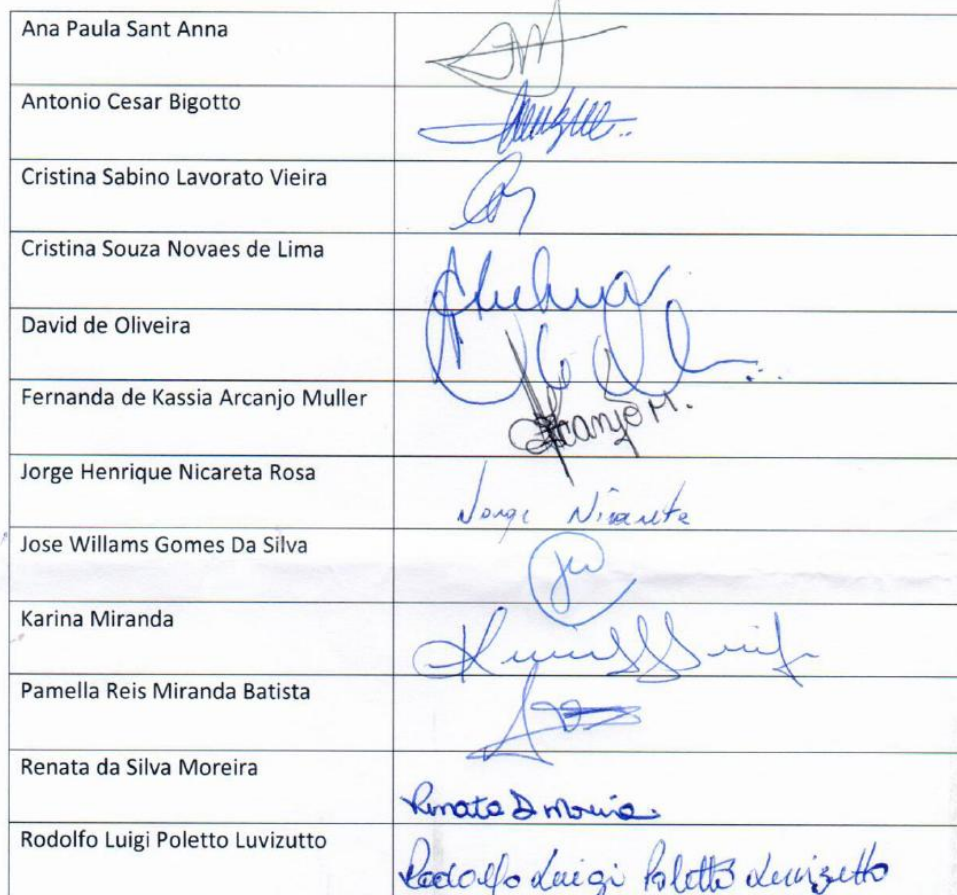 Ana Paula Sant Anna
Antonio Cesar Bigotto
Cristina Sabino Lavorato Vieira
Cristina Souza Novaes de Lima
David de Oliveira
Fernanda de Kassia Arcanjo Muller
Arcanjo M.
Jorge Henrique Nicareta Rosa
Jorge Nicareta
Jose Willams Gomes Da Silva
Karina Miranda
Pamella Reis Miranda Batista
Renata da Silva Moreira
Renata D Moreira
Rodolfo Luigi Poletto Luvizutto
Rodolfo Luigi Poletto Luvizutto